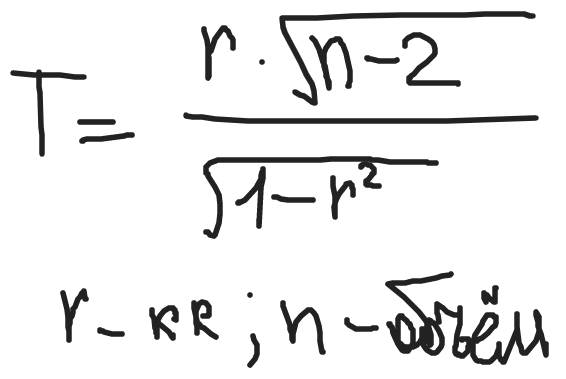 T = r · √n-2 / √1-r²
r - кк ; n - объём